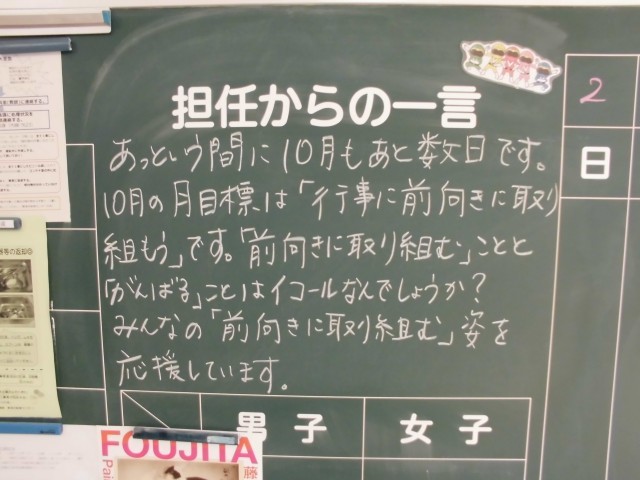 担任からの一言
あっという間に10月もあと数日です。
10月の月目標は「行事に前向きに取り
組もう」です。「前向きに取り組む」ことと
「がんばる」ことはイコールなんでしょうか?
みんなの「前向きに取り組む」姿を
応援しています。
2
日
男子
女子
FOUJITA
藤